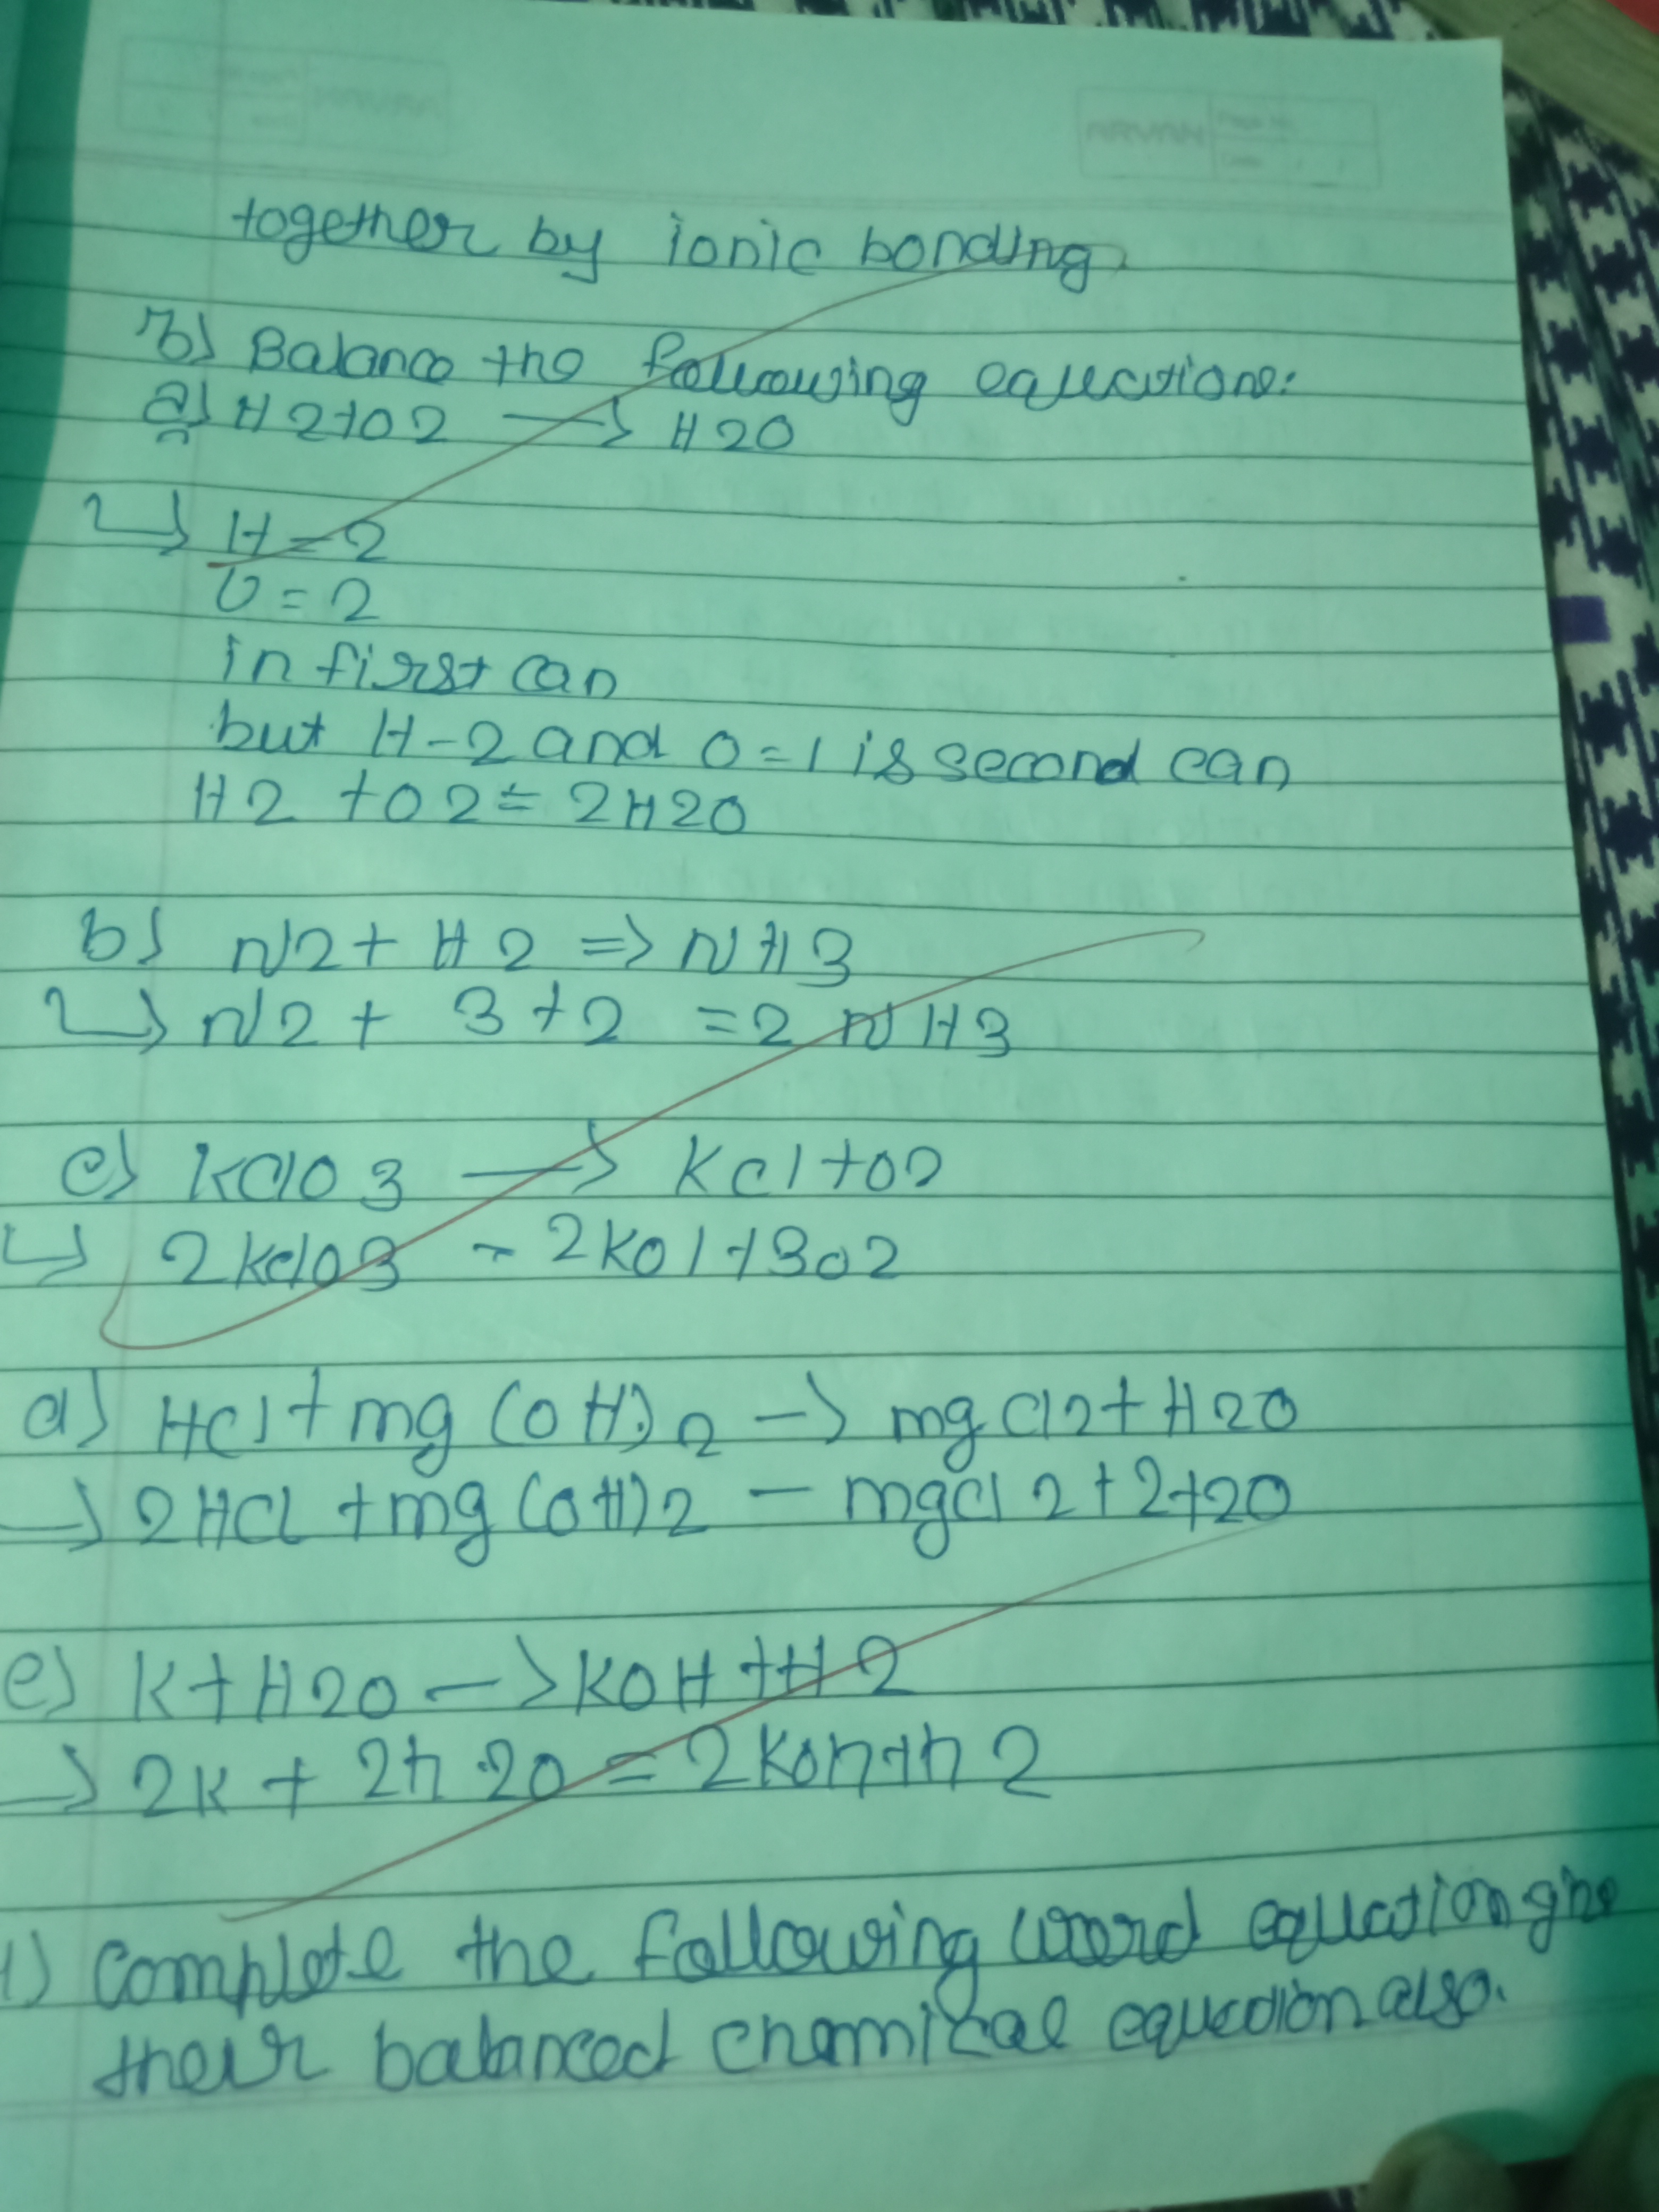 ARVAN Page No.
Date / /
together by ionic bonding
b) Balance the following equations:
a) H2+O2 → H2O
↳ H=2
O=2
in first can
but H-2 and O=1 is second can
H2 +O2 = 2H2O
b) N2+ H2 => NH3
↳ N2 + 3H2 =2 NH3
c) KClO3 → KCl+O2
↳ 2KClO3 - 2KCl+3O2
d) HCl+mg(OH)2 -> mgCl2+H2O
↳ 2HCL +mg(OH)2 - mgcl2+2H2O
e) K+H2O -> KOH+H2
→ 2K + 2h2O = 2Koh+h2
1) complete the following word equation give
their balanced chemical equation also.